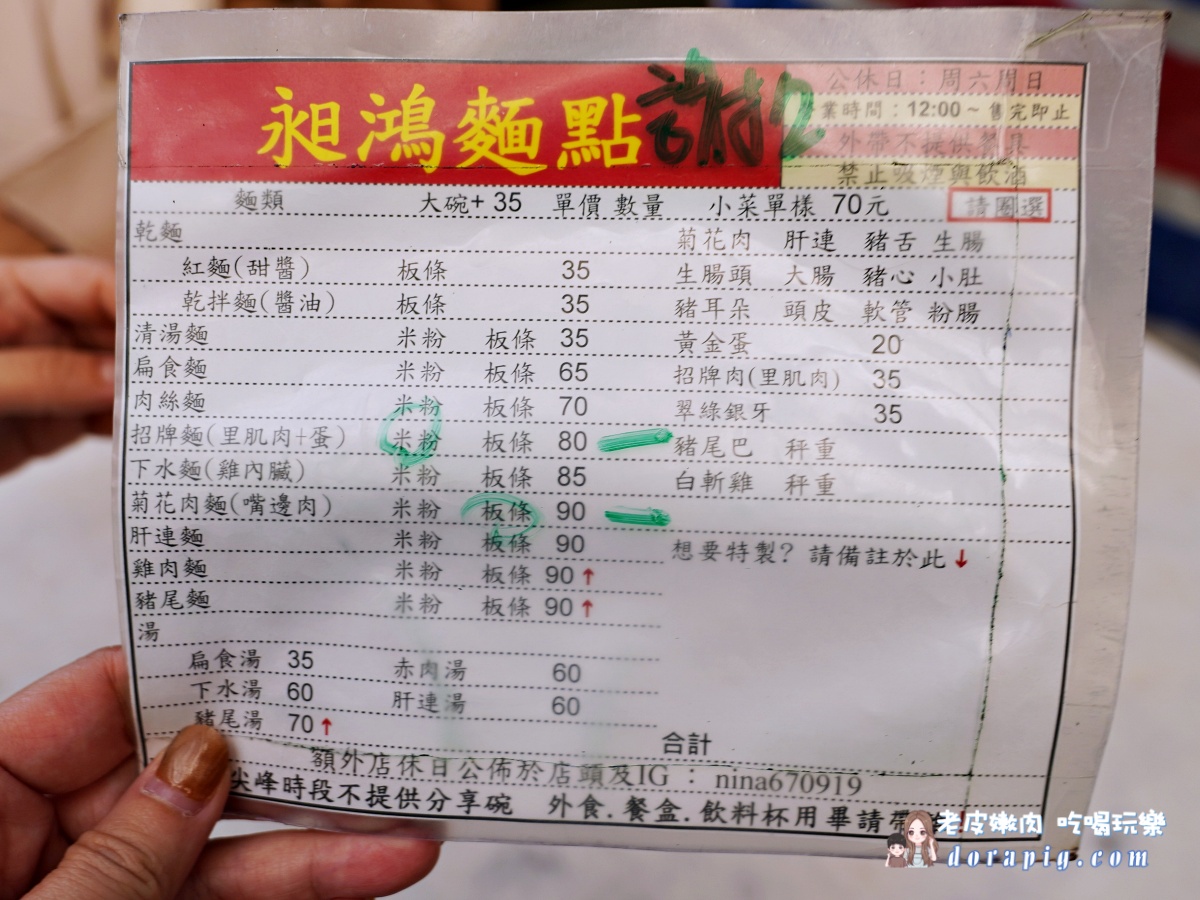 昶鴻麵點 謝 2
公休日：周六周日
業時間：12:00 ~ 售完即止
外帶不提供餐具
禁止吸煙與飲酒
麵類 大碗+ 35 單價 數量 小菜單樣 70元 請圈選
乾麵 菊花肉 肝連 豬舌 生腸
紅麵(甜醬) 板條 35 生腸頭 大腸 豬心 小肚
乾拌麵(醬油) 板條 35 豬耳朵 頭皮 軟管 粉腸
清湯麵 米粉 板條 35 黃金蛋 20
扁食麵 米粉 板條 65 招牌肉(里肌肉) 35
肉絲麵 米粉 板條 70 翠綠銀牙 35
招牌麵(里肌肉+蛋) 米粉 板條 80 豬尾巴 秤重
下水麵(雞內臟) 米粉 板條 85 白斬雞 秤重
菊花肉麵(嘴邊肉) 米粉 板條 90
肝連麵 米粉 板條 90 想要特製? 請備註於此↓
雞肉麵 米粉 板條 90↑
豬尾麵 米粉 板條 90↑
湯
扁食湯 35 赤肉湯 60
下水湯 60 肝連湯 60
豬尾湯 70↑
合計
額外店休日公佈於店頭及IG : nina670919
尖峰時段不提供分享碗 外食.餐盒.飲料杯用畢請帶
老皮嫩肉 吃喝玩樂
dorapig.com